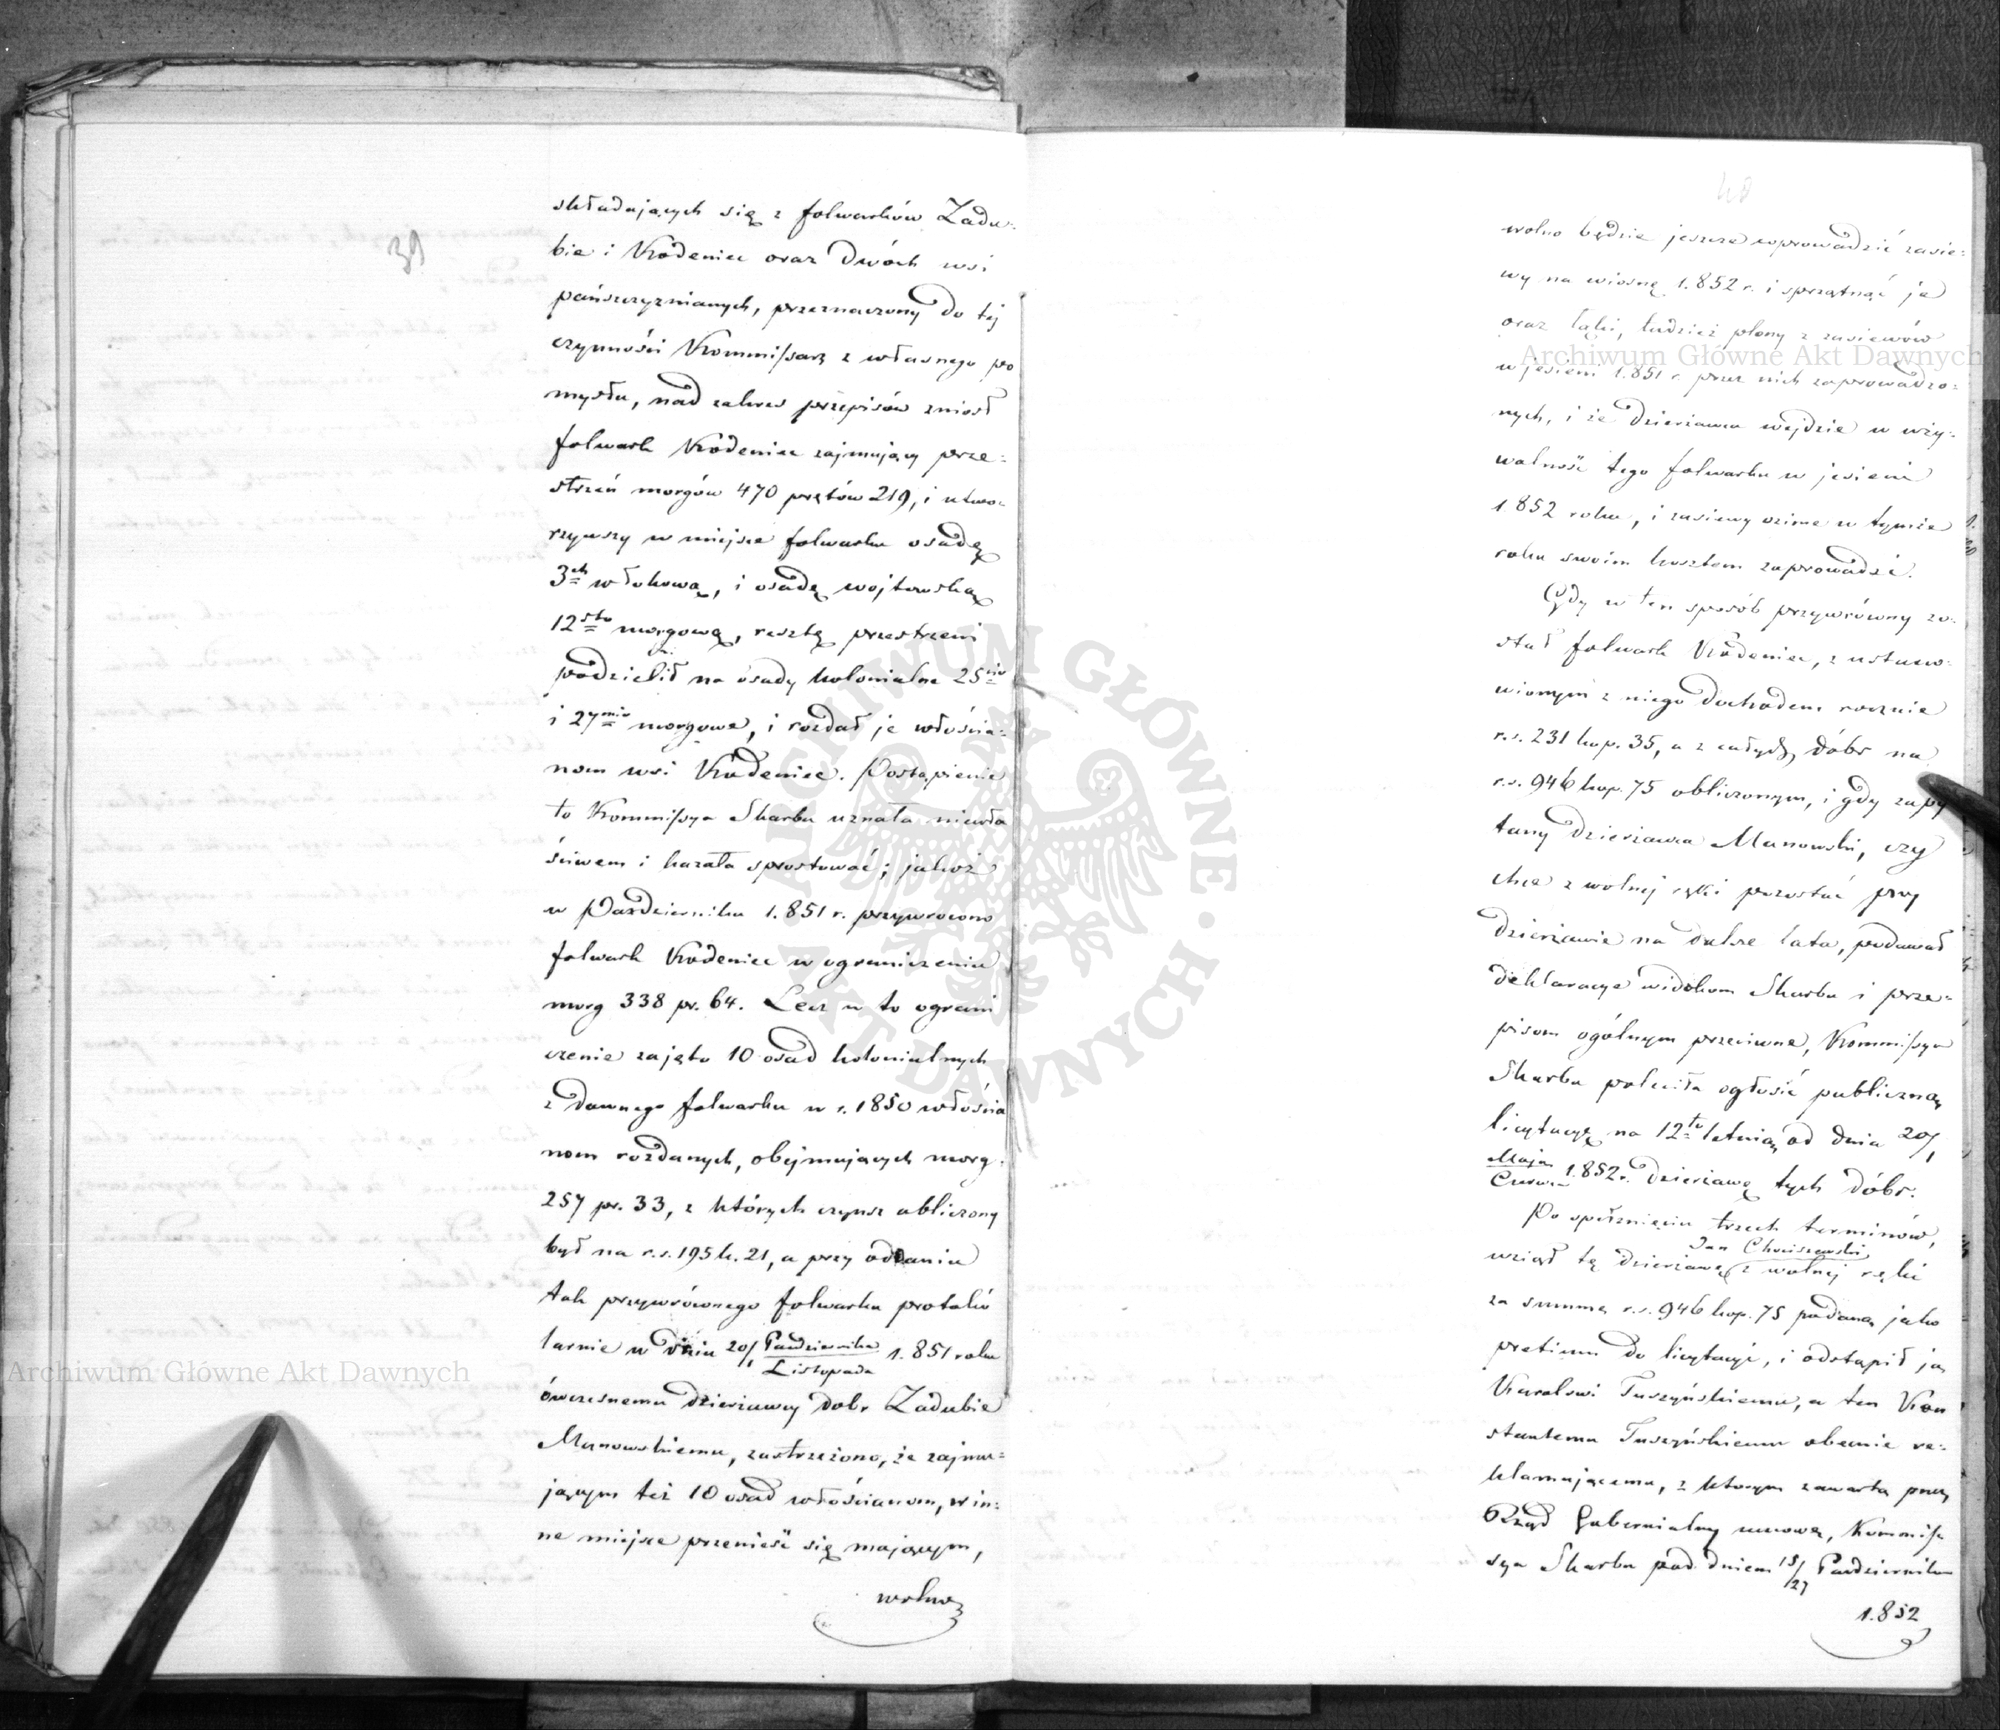 39
składających się z folwarków Zadu-
bie i Kodeniec oraz dwóch wsi
pańszczyznianych, przeznaczony do tej
czynności Kommissarz z własnego po
mysłu, nad zakres przepisów zniósł
folwark Kodeniec zajmujący prze-
strzeń morgów 470 prętów 219, i utwo-
rzywszy w miejsce folwarku osadę
3ch włokową, i osadę wojtowską
12sto morgową, resztę przestrzeni
podzielił na osady kolonialne 25cio
i 27mio morgowe, i rozdał je włościa-
nom wsi Kodeniec. Postąpienie
to Kommissya Skarbu uznała niewła
ściwem i kazała sprostować; jakoż
w Październiku 1.851 r. przywrócono
folwark Kodeniec w ograniczeniu
morg 338 pr. 64. Lecz w to ograni
czenie zajęto 10 osad kolonialnych
z dawnego folwarku w r. 1850 włościa
nom rozdanych, obejmujących morg.
257 pr. 33, z których czynsz obliczony
był na r.s. 195 k. 21, a przy oddaniu
tak przywróconego folwarku protokó
larnie w dniu 20/1 Października/Listopada 1.851 roku
ówczesnemu dzierżawcy dóbr Zadubie
Manowskiemu, zastrzeżono, że zajmu-
jącym też 10 osad włościanom, w in-
ne miejsce przenieść się mającym,
wolno
40
wolno będzie jeszcze zaprowadzić zasie-
wy na wiosnę 1.852 r. i sprzątnąć je
oraz łąki, tudzież plony z zasiewów
w jesieni 1.851 r. przez nich zaprowadzo-
nych, i że dzierżawca wejdzie w uży-
walność tego folwarku w jesieni
1.852 roku, i zasiewy ozime w tymże
roku swoim kosztem zaprowadzi.
Gdy w ten sposób przywrócony zo-
stał folwark Kodeniec, z ustano-
wionym z niego dochodem rocznie
r.s. 231 kop. 35, a z całych dóbr na
r.s. 946 kop. 75 obliczonym, i gdy zapy
tany dzierżawca Manowski, czy
chce z wolnej ręki pozostać przy
dzierżawie na dalsze lata, podawał
deklaracye widokom Skarbu i prze-
pisom ogólnym przeciwne, Kommissya
Skarbu poleciła ogłosić publiczną
licytacyę na 12to letnią od dnia 20/1
Maja/Czerwca 1.852 r. dzierżawę tych dóbr.
Po spełznięciu trzech terminów,
Jan Chociszewski
wziął tę dzierżawę z wolnej ręki
za summę r.s. 946 kop. 75 podaną jako
pretium do licytacyi, i odstąpił ją
Karolowi Tuszyńskiemu, a ten Kon
stantemu Tuszyńskiemu obecnie re-
klamującemu, z którym zawartą przez
Rząd Gubernialny umowę, Kommis
sya Skarbu pod dniem 15/27 Października
1.852
Archiwum Główne Akt Dawnych
Archiwum Główne Akt Dawnych
ARCHIWUM GŁÓWNE · AKT DAWNYCH ·